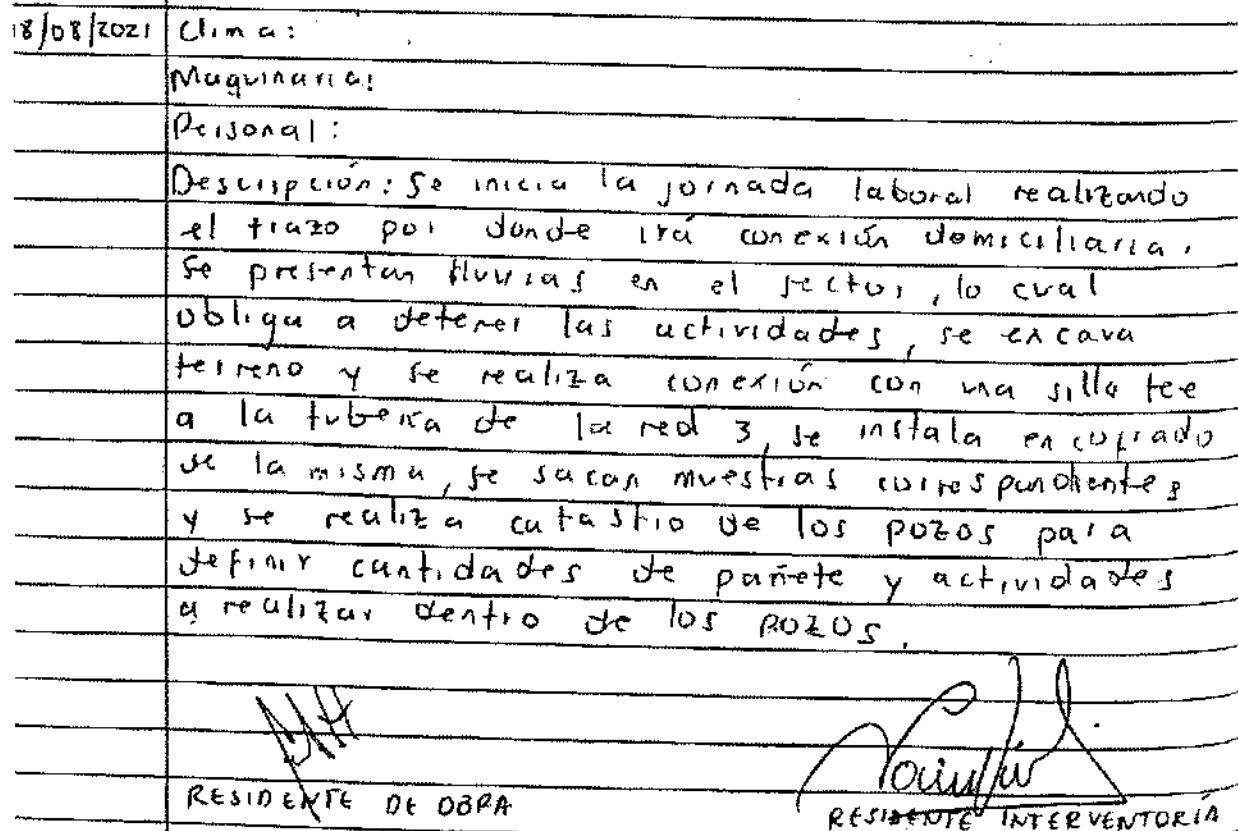 18/08/2021 Clima:
Maquinaria:
Personal:
Descripción: Se inicia la jornada laboral realizando
el trazo por donde irá conexión domiciliaria.
Se presentan lluvias en el sector, lo cual
obliga a detener las actividades, se excava
terreno y se realiza conexión con una silla tee
a la tubería de la red 3, se instala encofrado
de la misma, se sacan muestras correspondientes
y se realiza catastro de los pozos para
definir cantidades de pañete y actividades
a realizar dentro de los pozos.
RESIDENTE DE OBRA
RESIDENTE INTERVENTORÍA